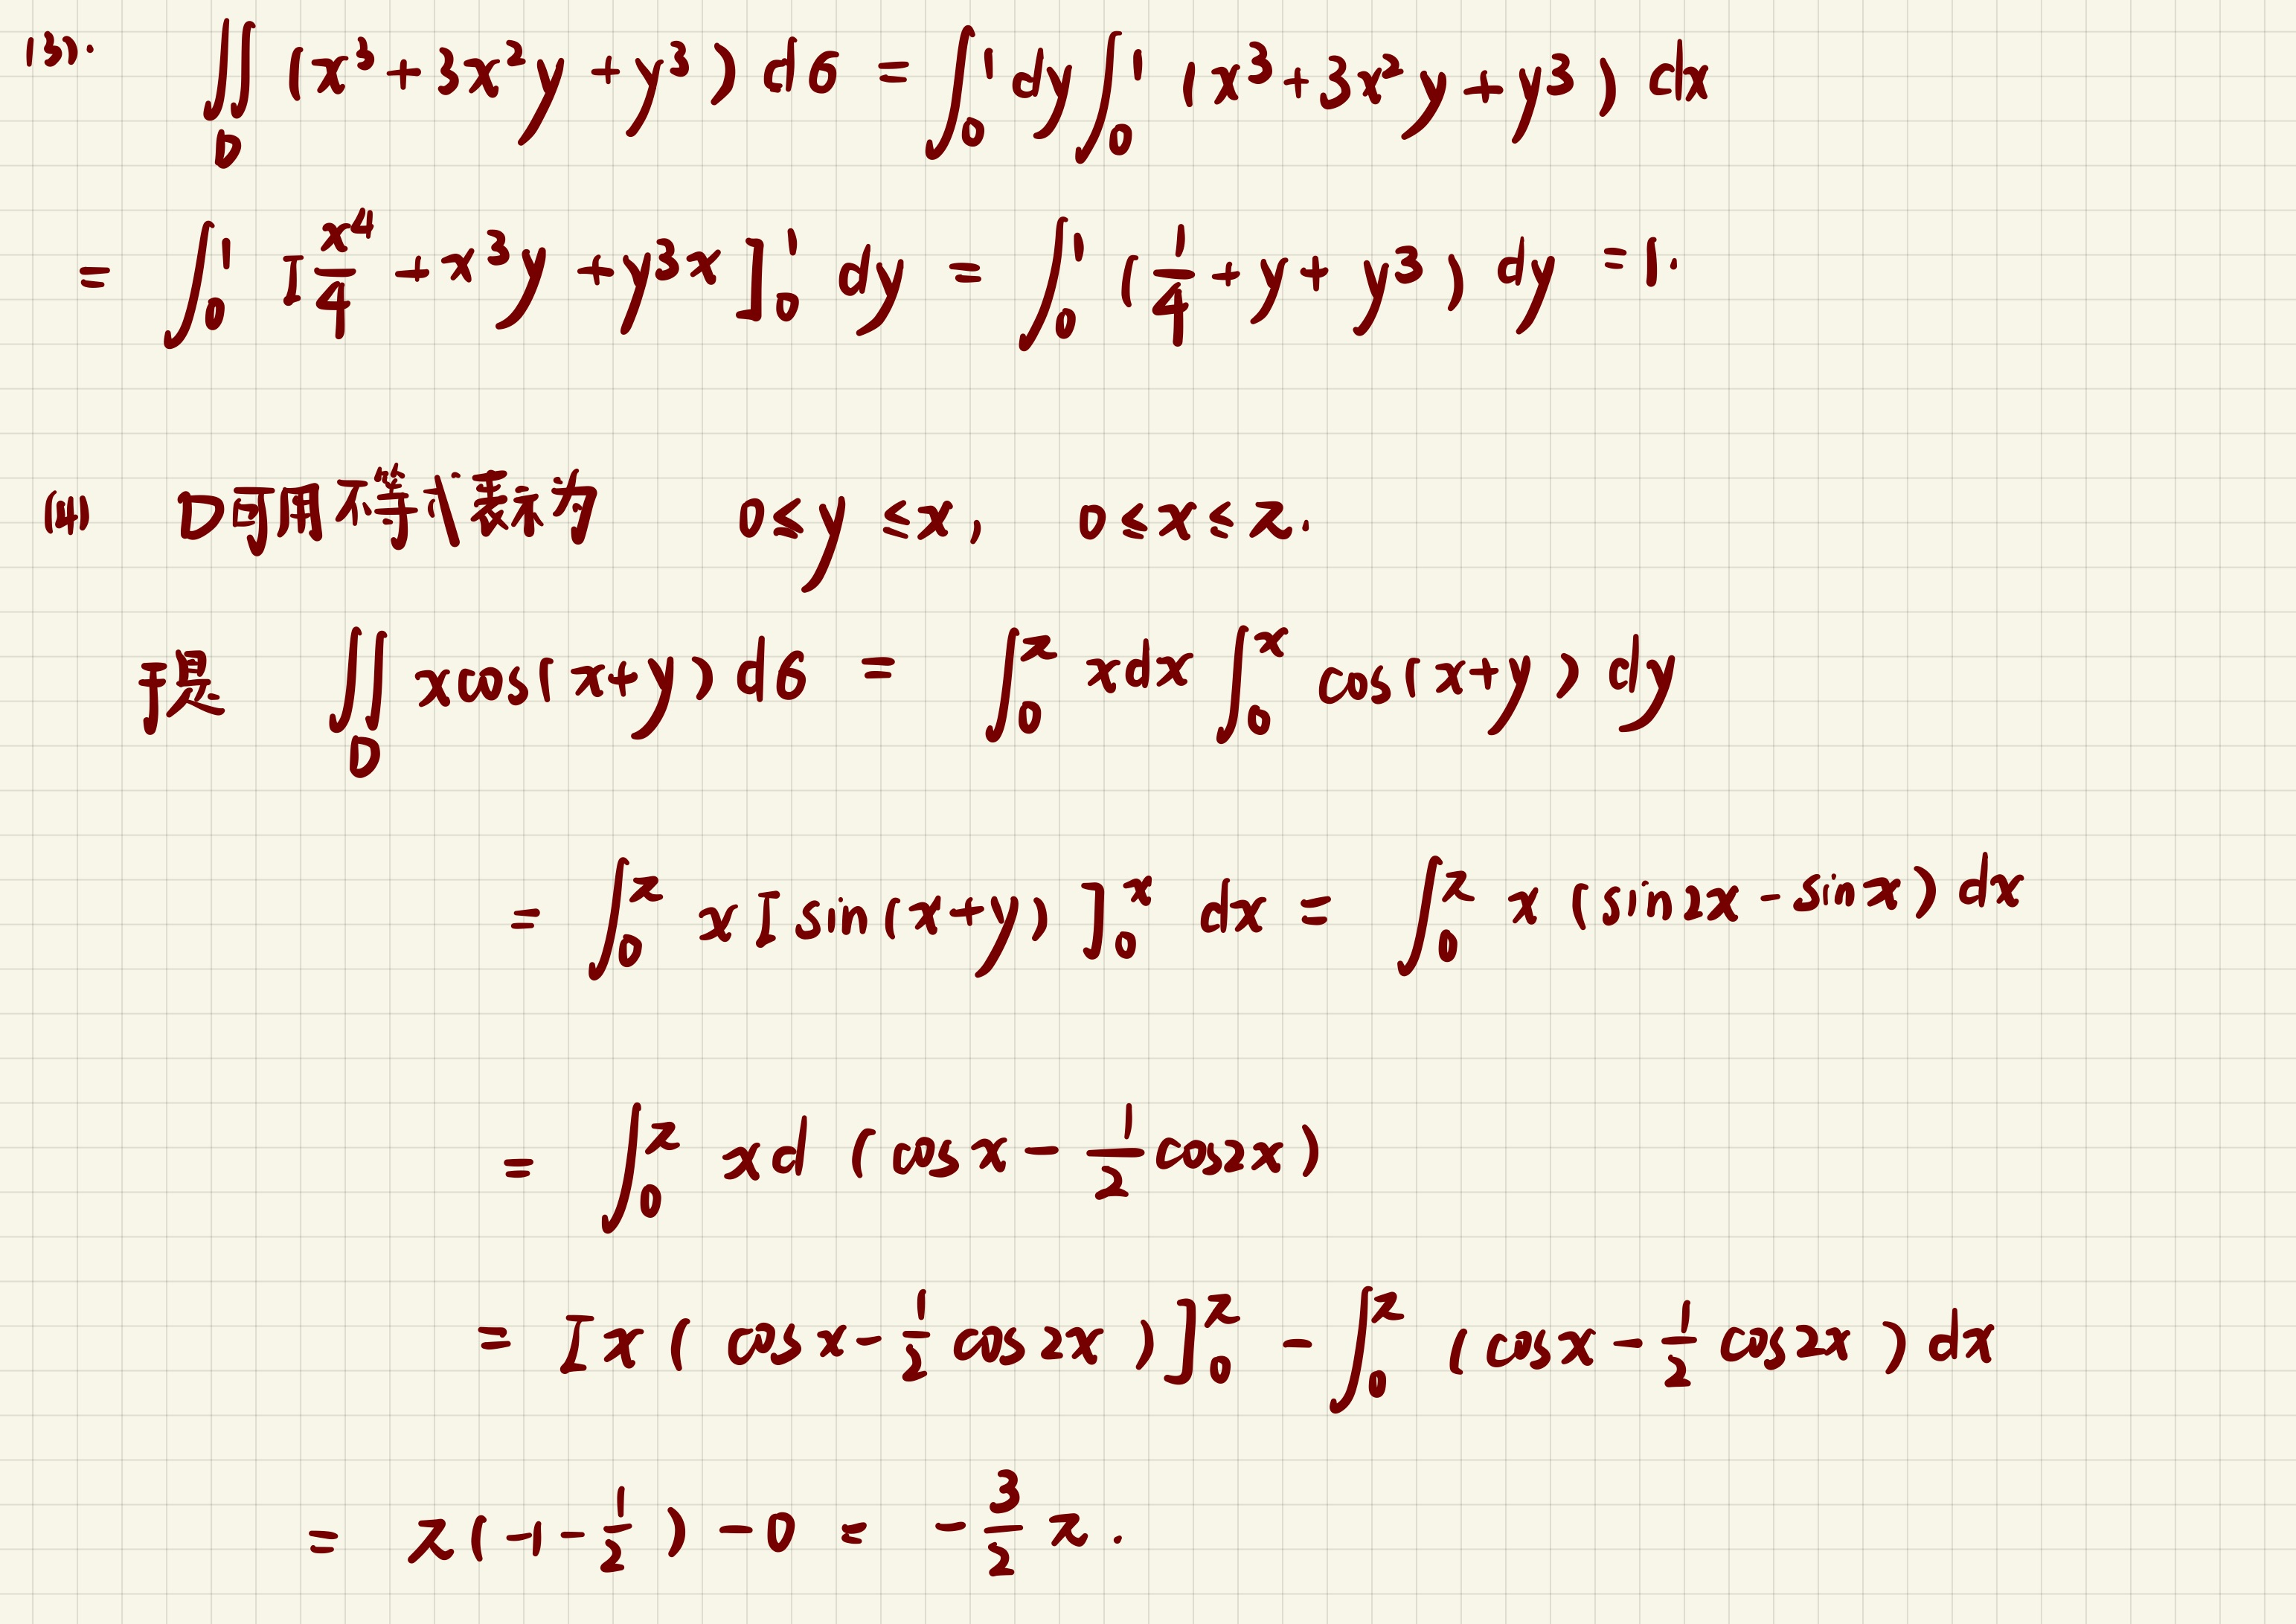 (3). ∬_D (x³+3x²y+y³)dσ = ∫₀¹dy∫₀¹(x³+3x²y+y³)dx
= ∫₀¹[x⁴/4+x³y+y³x]₀¹dy = ∫₀¹(1/4+y+y³)dy = 1.
(4) D可用不等式表示为 0≤y≤x, 0≤x≤π.
于是 ∬_D xcos(x+y)dσ = ∫₀^π xdx∫₀^x cos(x+y)dy
= ∫₀^π x[sin(x+y)]₀^x dx = ∫₀^π x(sin2x-sinx)dx
= ∫₀^π xd(cosx-1/2cos2x)
= [x(cosx-1/2cos2x)]₀^π - ∫₀^π(cosx-1/2cos2x)dx
= π(-1-1/2)-0 = -3/2π.